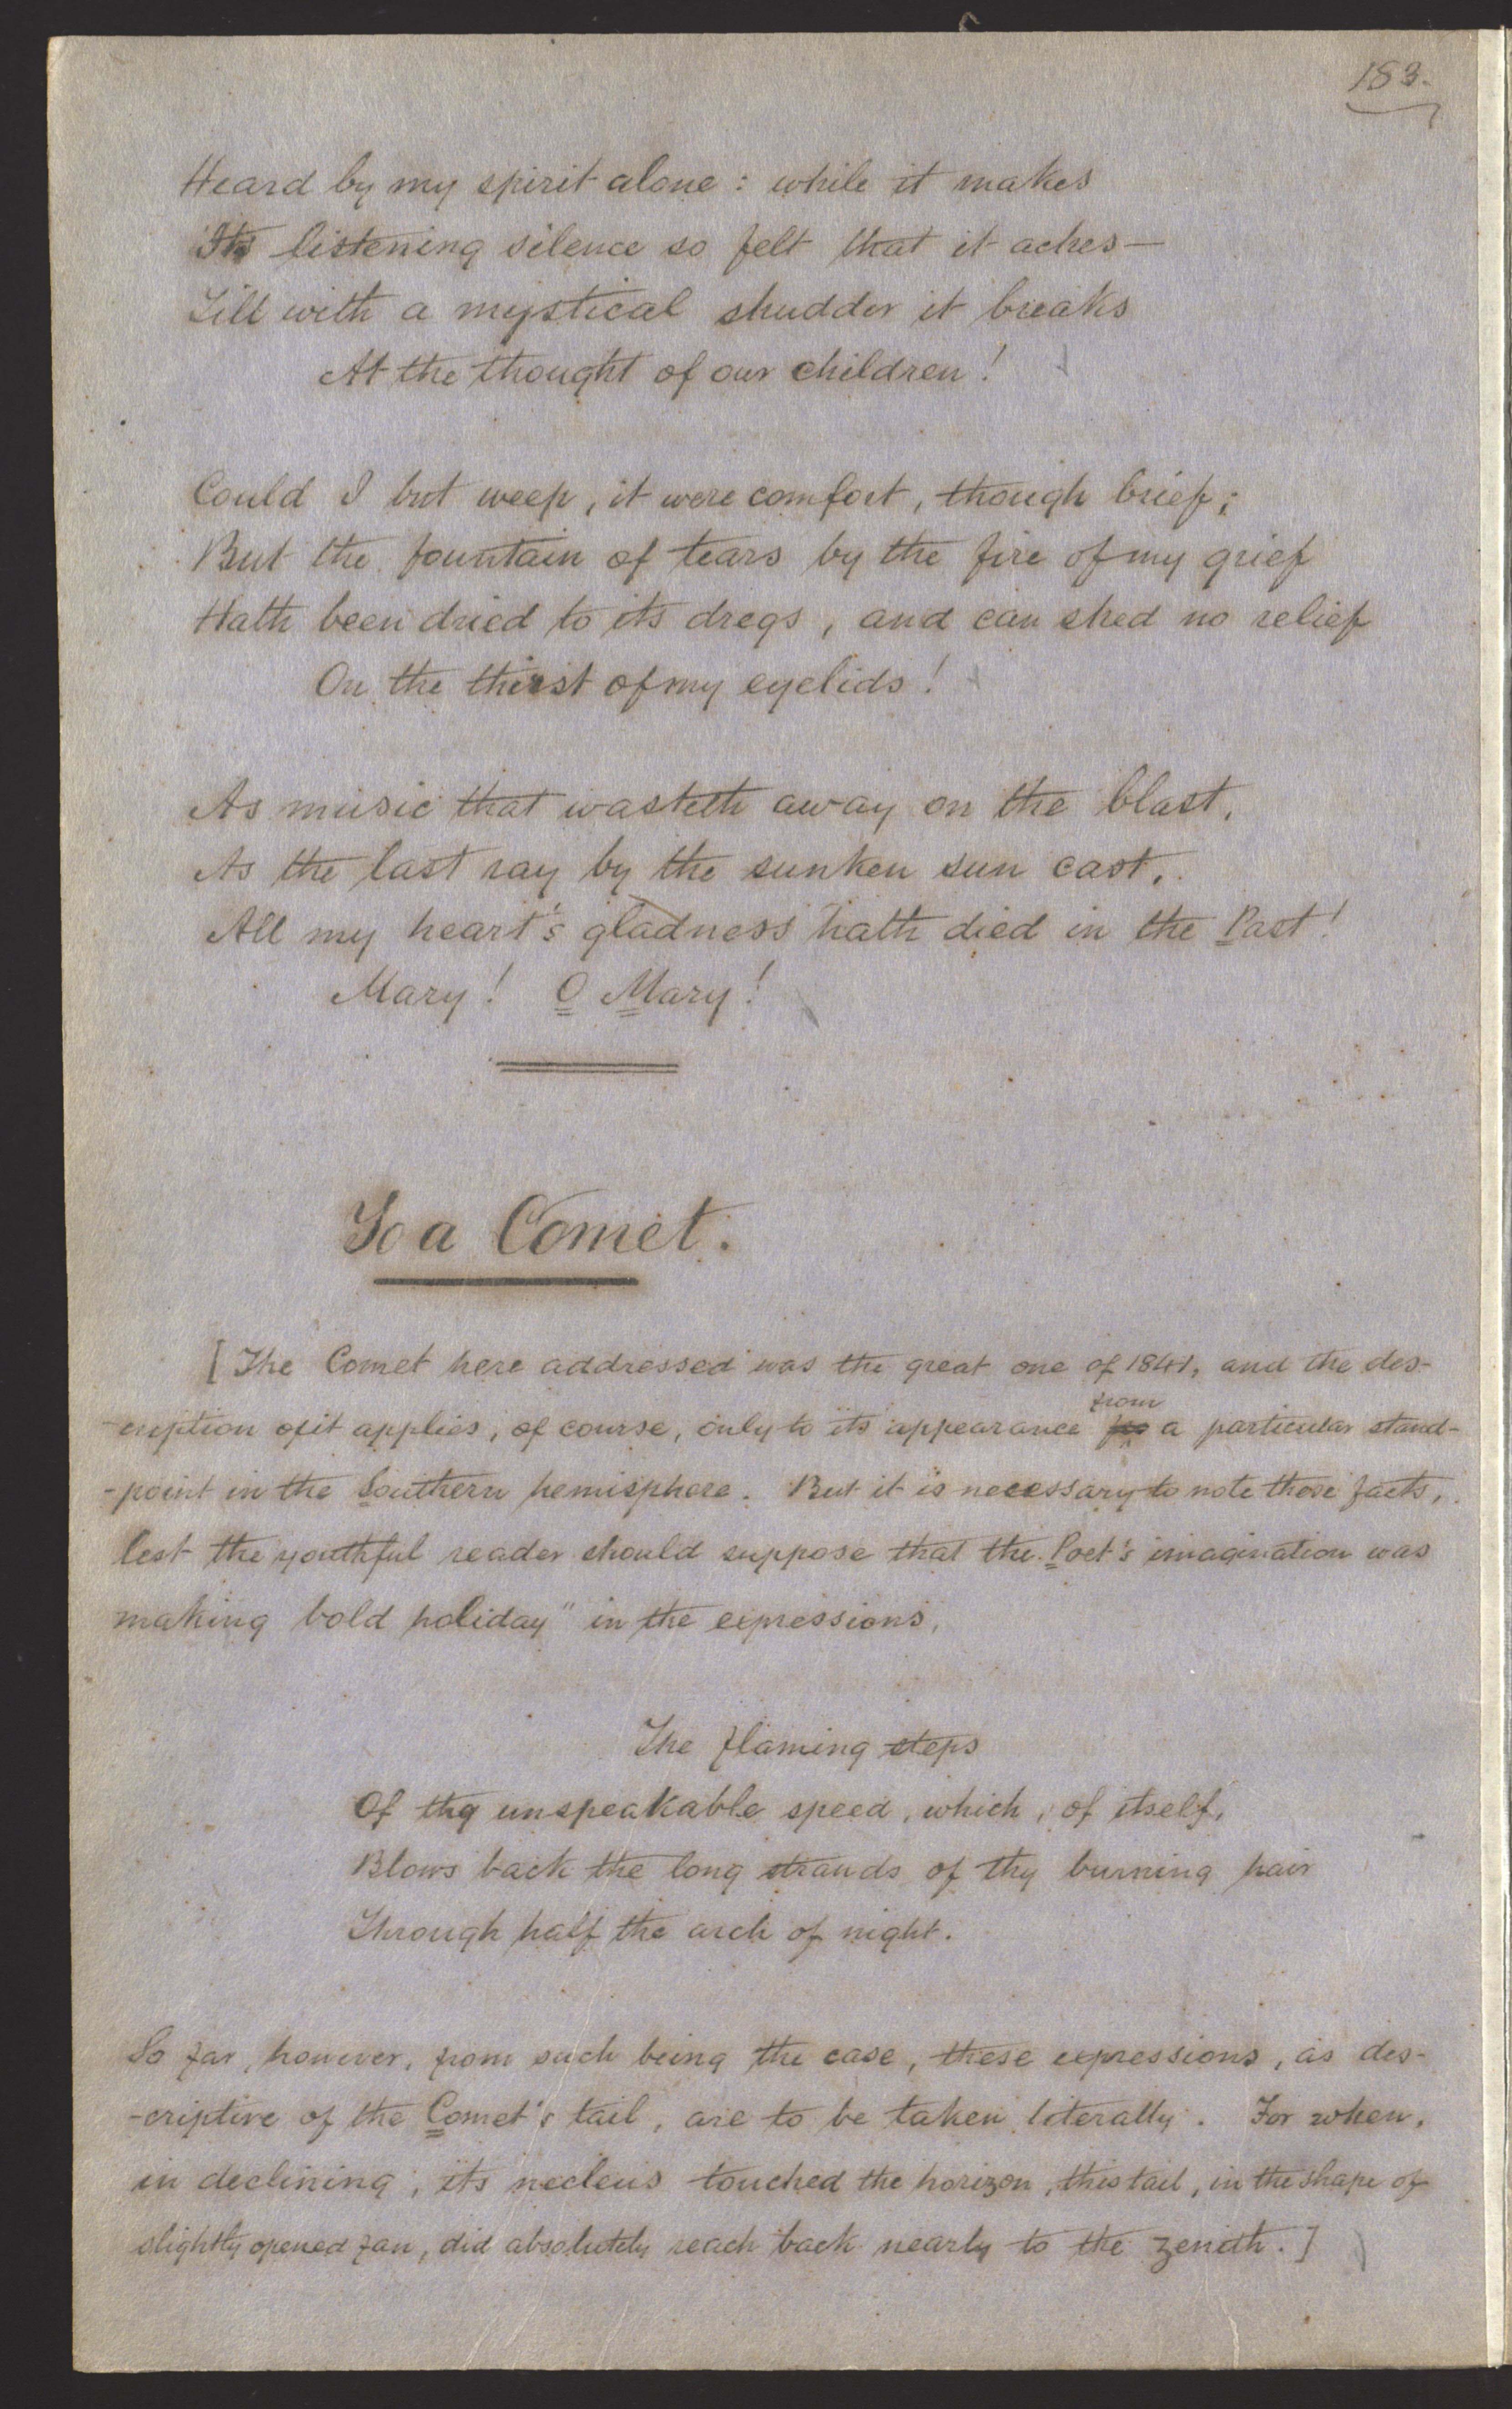 183.
Heard by my spirit alone : while it makes
Its listening silence so felt that it aches—
Till with a mystical shudder it breaks
At the thought of our children!
Could I but weep, it were comfort, though brief;
But the fountain of tears by the fire of my grief
Hath been dried to its dregs, and can shed no relief
On the thirst of my eyelids!
As music that wasteth away on the blast,
As the last ray by the sunken sun cast,
All my heart's gladness hath died in the Past!
Mary! O Mary!
To a Comet.
[The Comet here addressed was the great one of 1841, and the des-
-cription of it applies, of course, only to its appearance from a particular stand-
-point in the Southern hemisphere. But it is necessary to note those facts,
lest the youthful reader should suppose that the Poet's imagination was
making bold holiday" in the expressions,
The flaming steps
Of thy unspeakable speed, which, of itself,
Blows back the long strands of thy burning hair
Through half the arch of night.
So far, however, from such being the case, these expressions, as des-
-criptive of the Comet's tail, are to be taken literally. For when,
in declining, its necleus touched the horizon, this tail, in the shape of
slightly opened fan, did absolutely reach back nearly to the zenith.]